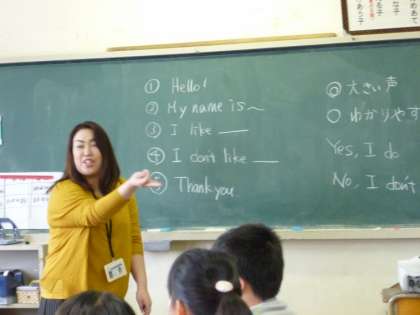 ① Hello!
② My name is ~
③ I like ____
④ I don't like ____
⑤ Thank you.
◎ 大きい声
○ わかりやす
Yes, I do
No, I don't